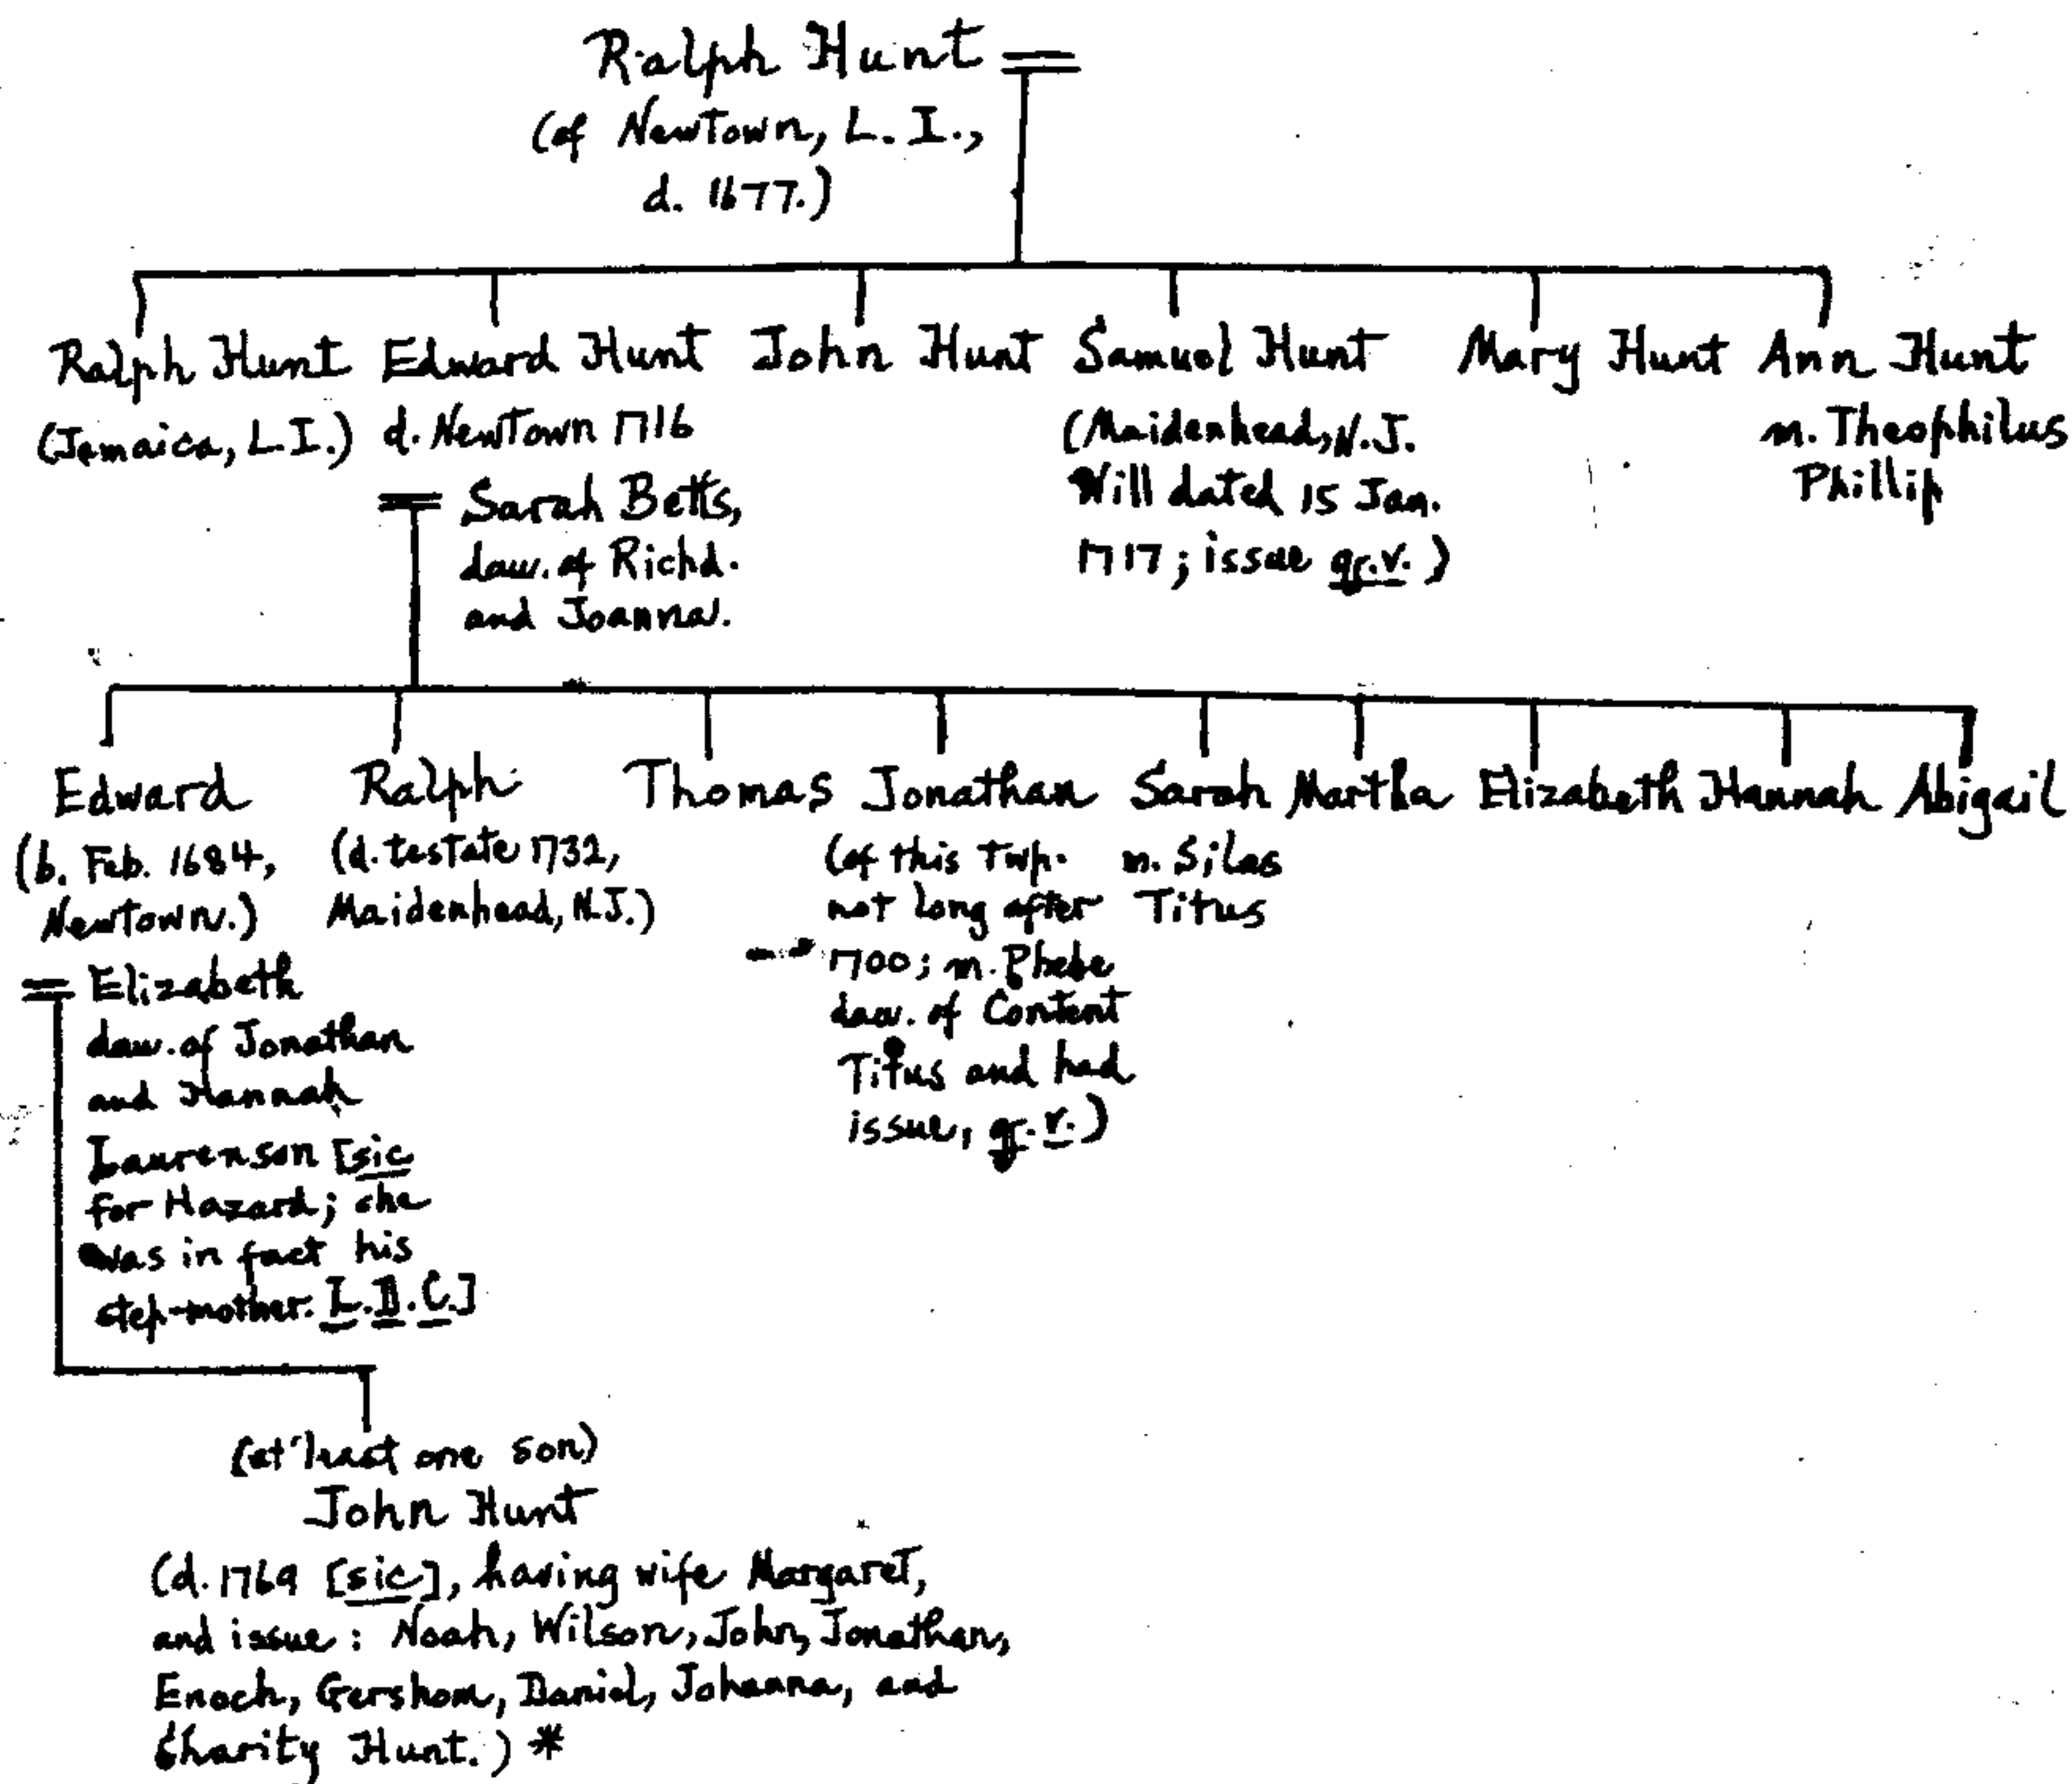 Ralph Hunt
(of Newtown, L. I.,
d. 1677.)
Ralph Hunt
(Jamaica, L.I.)
Edward Hunt
d. Newtown 1716
= Sarah Betts,
daw. of Richd.
and Joanna.
John Hunt
Samuel Hunt
(Maidenhead, N.J.
Will dated 15 Jan.
1717; issue q.v.)
Mary Hunt
Ann Hunt
m. Theophilus
Phillip
Edward
(b. Feb. 1684,
Newtown.)
= Elizabeth
daw. of Jonathan
and Hannah
Laurenson [sic
for Hazard; she
was in fact his
step-mother. L.D.C.]
Ralph
(d. testate 1732,
Maidenhead, N.J.)
Thomas
Jonathan
(of this Twp.
not long after
1700; m. Phebe
daw. of Content
Titus and had
issue, q.v.)
Sarah
m. Silas
Titus
Martha
Elizabeth
Hannah
Abigail
(at least one son)
John Hunt
(d. 1769 [sic], having wife Margaret,
and issue: Noah, Wilson, John, Jonathan,
Enoch, Gershom, Daniel, Johanna, and
Charity Hunt.) *